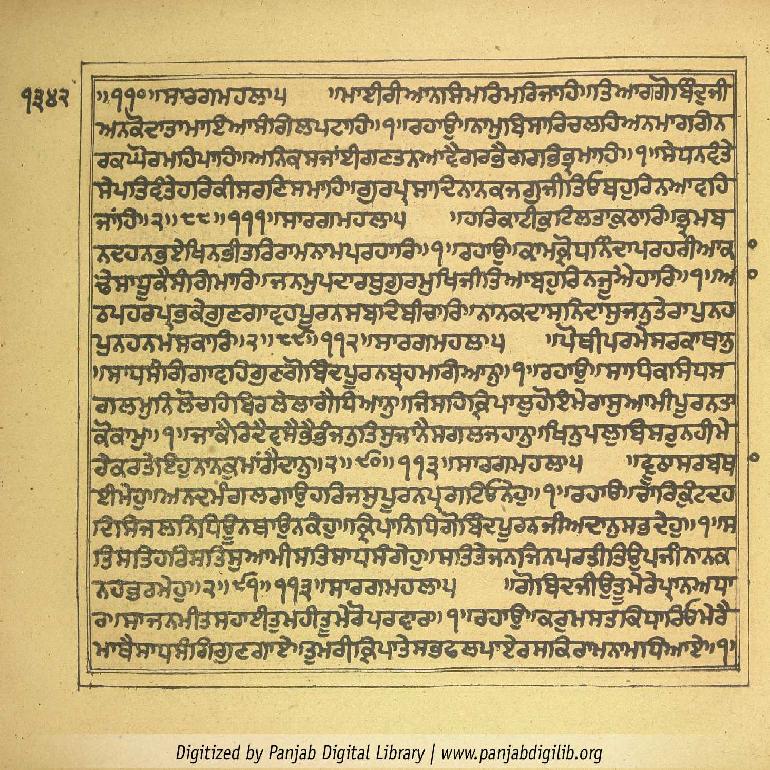 ੧੩੪੨
॥੧੧੦॥ਸਾਰਗਮਹਲਾ੫ ॥ਮਾਈਰੀਆਨਸਿਮਰਿਮਰਿਜਾਹਿ॥ਤਿਆਗਗੋਬਿੰਦੁਜੀ
ਅਨਕੋਦਾਤਾਮਾਇਆਸੰਗਿਲਪਟਾਹਿ॥੧॥ਰਹਾਉ॥ਨਾਮੁਬਿਸਾਰਿਚਲਹਿਅਨਮਾਰਗਿਨ
ਰਕਘੋਰਮਹਿਪਾਹਿ॥ਅਨਿਕਸਜਾਂਈਗਣਤਨਆਵੈਗਰਭੈਗਰਭਿਭ੍ਰਮਾਹਿ॥੧॥ਸੇਧਨਵੰਤੇ
ਸੇਪਤਿਵੰਤੇਹਰਿਕੀਸਰਣਿਸਮਾਹਿ॥ਗੁਰਪ੍ਰਸਾਦਿਨਾਨਕਜਗੁਜੀਤਿਓਬਹੁਰਿਨਆਵਹਿ
ਜਾਂਹਿ॥੨॥੮੮॥੧੧੧॥ਸਾਰਗਮਹਲਾ੫ ॥ਹਰਿਕਾਟੀਕੁਟਿਲਤਾਕੁਠਾਰਿ॥ਭ੍ਰਮਬ
ਨਦਹਨਭਏਖਿਨਭੀਤਰਿਰਾਮਨਾਮਪਰਹਾਰਿ॥੧॥ਰਹਾਉ॥ਕਾਮਕ੍ਰੋਧਨਿੰਦਾਪਰਹਰੀਆਕ
ਢੇਸਾਧੂਕੈਸੰਗਿਮਾਰਿ॥ਜਨਮੁਪਦਾਰਥੁਗੁਰਮੁਖਿਜੀਤਿਆਬਹੁਰਿਨਜੂਐਹਾਰਿ॥੧॥ਆ
ਠਪਹਰਪ੍ਰਭਕੇਗੁਣਗਾਵਹਪੂਰਨਸਬਦਿਬੀਚਾਰਿ॥ਨਾਨਕਦਾਸਨਿਦਾਸੁਜਨੁਤੇਰਾਪੁਨਹ
ਪੁਨਹਨਮਸਕਾਰਿ॥੨॥੮੯॥੧੧੨॥ਸਾਰਗਮਹਲਾ੫ ॥ਪੋਥੀਪਰਮੇਸਰਕਾਥਾਨੁ
॥ਸਾਧਸੰਗਿਗਾਵਹਿਗੁਣਗੋਬਿੰਦਪੂਰਨਬ੍ਰਹਮਗਿਆਨੁ॥੧॥ਰਹਾਉ॥ਸਾਧਿਕਸਿਧਸ
ਗਲਮੁਨਿਲੋਚਹਿਬਿਰਲੇਲਾਗੈਧਿਆਨੁ॥ਜਿਸਹਿਕ੍ਰਿਪਾਲੁਹੋਇਮੇਰਾਸੁਆਮੀਪੂਰਨਤਾ
ਕੋਕਾਮੁ॥੧॥ਜਾਕੈਰਿਦੈਵਸੈਭੈਭੰਜਨੁਤਿਸੁਜਾਨੈਸਗਲਜਹਾਨੁ॥ਖਿਨੁਪਲੁਬਿਸਰੁਨਹੀਮੇ
ਰੇਕਰਤੇਇਹੁਨਾਨਕੁਮਾਂਗੈਦਾਨੁ॥੨॥੯੦॥੧੧੩॥ਸਾਰਗਮਹਲਾ੫ ॥ਵੂਠਾਸਰਬਥ
ਈਮੇਹੁ॥ਅਨਦਮੰਗਲਗਾਉਹਰਿਜਸੁਪੂਰਨਪ੍ਰਗਟਿਓਨੇਹੁ॥੧॥ਰਹਾਉ॥ਚਾਰਿਕੁੰਟਦਹ
ਦਿਸਿਜਲਨਿਧਿਊਨਥਾਉਨਕੇਹੁ॥ਕ੍ਰਿਪਾਨਿਧਿਗੋਬਿੰਦਪੂਰਨਜੀਅਦਾਨੁਸਭਦੇਹੁ॥੧॥ਸ
ਤਿਸਤਿਹਰਿਸਤਿਸੁਆਮੀਸਤਿਸਾਧਸੰਗੇਹੁ॥ਸਤਿਤੇਜਨਜਿਨਪਰਤੀਤਿਉਪਜੀਨਾਨਕ
ਨਹਭਰਮੇਹੁ॥੨॥੯੧॥੧੧੩॥ਸਾਰਗਮਹਲਾ੫ ॥ਗੋਬਿਦਜੀਉਤੂਮੇਰੇਪ੍ਰਾਨਅਧਾ
ਰ॥ਸਾਜਨਮੀਤਸਹਾਈਤੁਮਹੀਤੂਮੇਰੋਪਰਵਾਰ॥੧॥ਰਹਾਉ॥ਕਰੁਮਸਤਕਿਧਾਰਿਓਮੇਰੈ
ਮਾਥੈਸਾਧਸੰਗਿਗੁਣਗਾਏ॥ਤੁਮਰੀਕ੍ਰਿਪਾਤੇਸਭਫਲਪਾਏਰਸਕਿਰਾਮਨਾਮਧਿਆਏ॥੧॥
Digitized by Panjab Digital Library | www.panjabdigilib.org